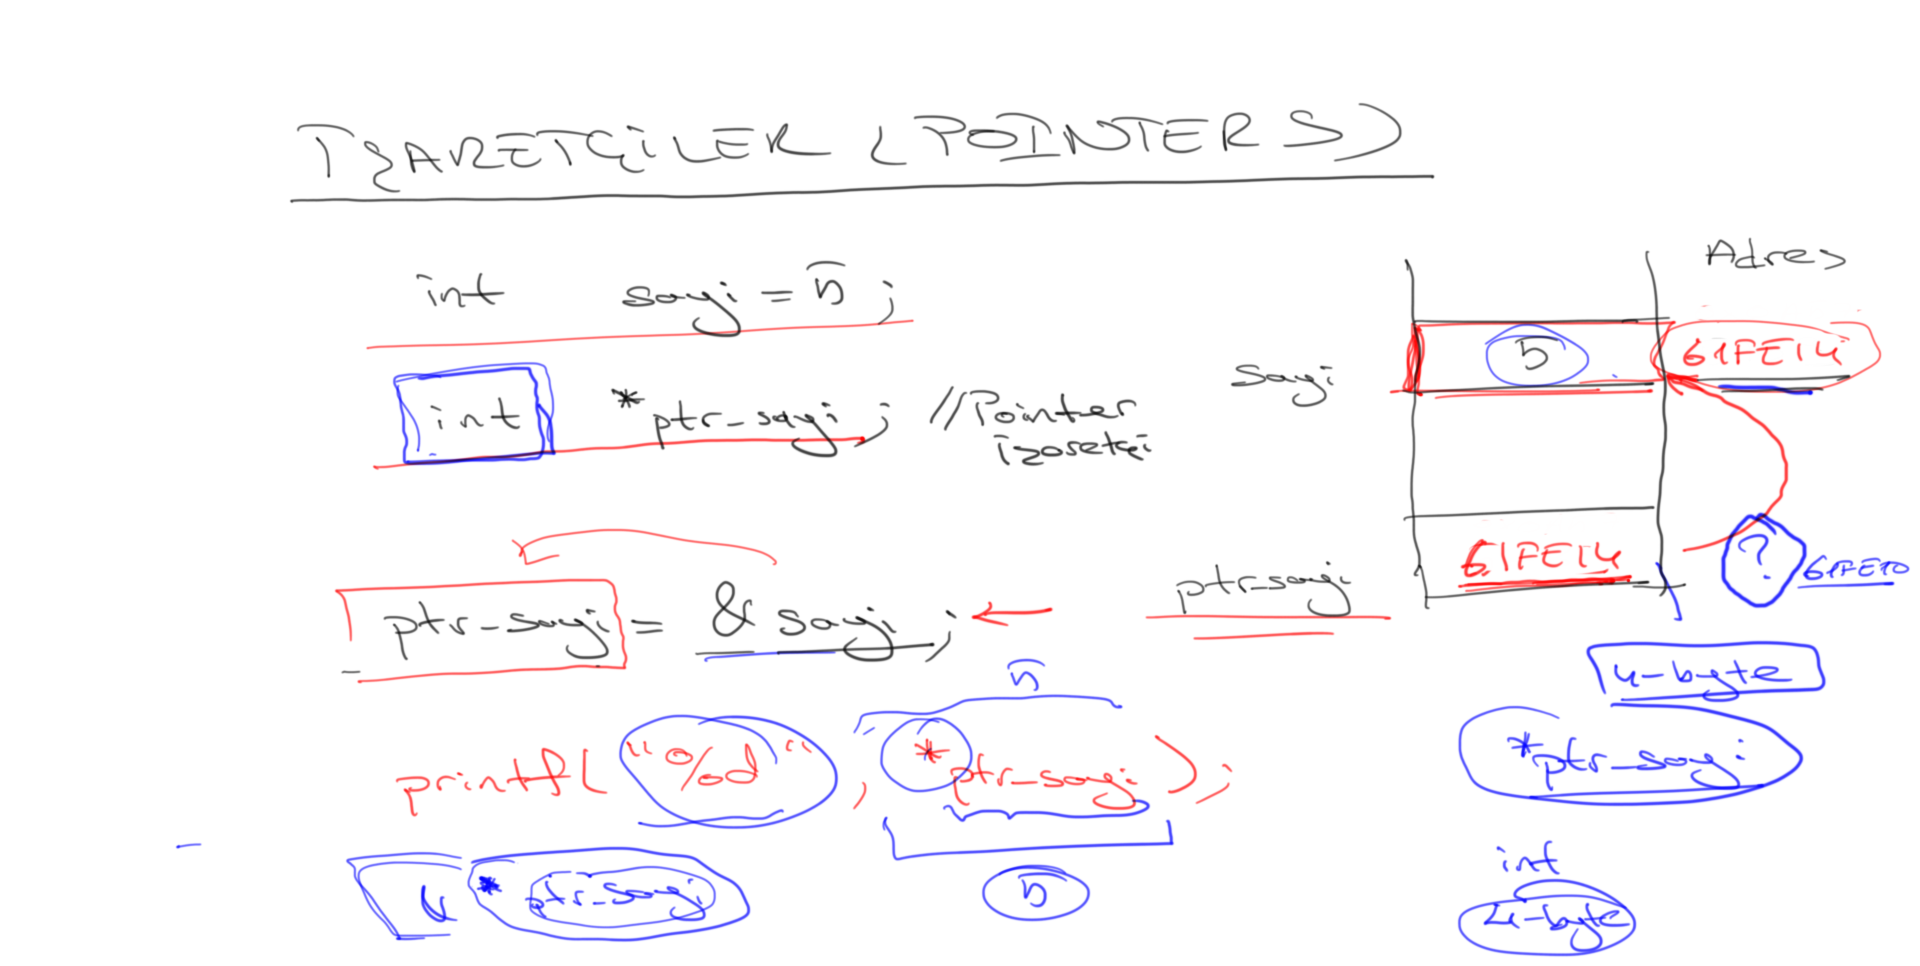 İŞARETÇİLER (POINTERS)
int sayi = 5 ;
int *ptr_sayi ; //Pointer
işaretçi
ptr_sayi = & sayi ;
5
printf( "%d" , *ptr_sayi ) ;
* ptr_sayi
5
Adres
sayi 5 61FE14
ptr_sayi 61FE14 ? 61FE10
4-byte
*ptr_sayi
int
4-byte